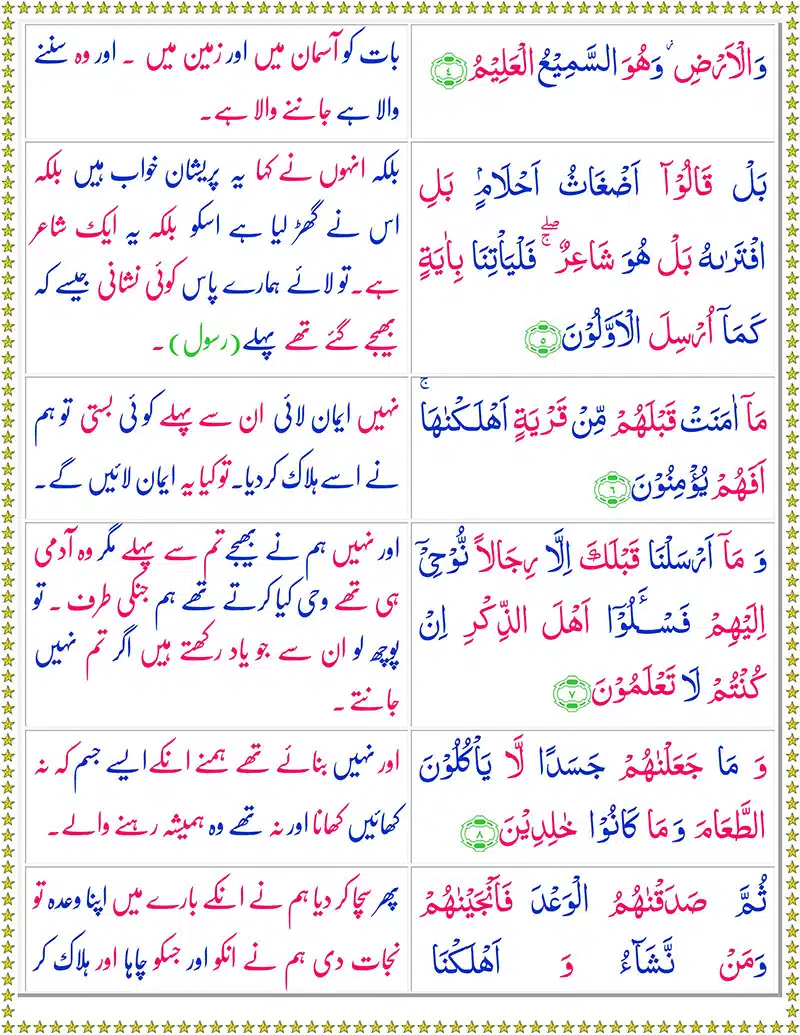 وَالْاَرْضِ ۫ وَهُوَ السَّمِيْعُ الْعَلِيْمُ ﴿۴﴾
بات کو آسمان میں اور زمین میں ۔ اور وہ سننے
والا ہے جاننے والا ہے۔
بَلْ قَالُوْۤا اَضْغَاثُ اَحْلَامٍۭ بَلِ
افْتَرٰىهُ بَلْ هُوَ شَاعِرٌ ۖۚ فَلْيَاْتِنَا بِاٰيَةٍ
كَمَاۤ اُرْسِلَ الْاَوَّلُوْنَ ﴿۵﴾
بلکہ انہوں نے کہا یہ پریشان خواب ہیں بلکہ
اس نے گھڑ لیا ہے اسکو بلکہ یہ ایک شاعر
ہے۔تو لائے ہمارے پاس کوئی نشانی جیسے کہ
بھیجے گئے تھے پہلے(رسول)۔
مَاۤ اٰمَنَتْ قَبْلَهُمْ مِّنْ قَرْيَةٍ اَهْلَكْنٰهَا ۚ
اَفَهُمْ يُؤْمِنُوْنَ ﴿۶﴾
نہیں ایمان لائی ان سے پہلے کوئی بستی تو ہم
نے اسے ہلاک کردیا۔تو کیا یہ ایمان لائیں گے۔
وَ مَاۤ اَرْسَلْنَا قَبْلَكَ اِلَّا رِجَالاً نُّوْحِىْۤ
اِلَيْهِمْ فَسْــَٔلُوْۤا اَهْلَ الذِّكْرِ اِنْ
كُنْتُمْ لَا تَعْلَمُوْنَ ﴿۷﴾
اور نہیں ہم نے بھیجے تم سے پہلے مگر وہ آدمی
ہی تھے وحی کیا کرتے تھے ہم جنکی طرف ۔ تو
پوچھ لو ان سے جو یاد رکھتے ہیں اگر تم نہیں
جانتے ۔
وَ مَا جَعَلْنٰهُمْ جَسَدًا لَّا يَاْكُلُوْنَ
الطَّعَامَ وَ مَا كَانُوْا خٰلِدِيْنَ ﴿۸﴾
اور نہیں بنائے تھے ہمنے انکے ایسے جسم کہ نہ
کھائیں کھانا اور نہ تھے وہ ہمیشہ رہنے والے۔
ثُمَّ صَدَقْنٰهُمُ الْوَعْدَ فَاَنْجَيْنٰهُمْ
وَمَنْ نَّشَآءُ وَ اَهْلَكْنَا
پھر سچا کر دیا ہم نے انکے بارے میں اپنا وعدہ تو
نجات دی ہم نے انکو اور جسکو چاہا اور ہلاک کر